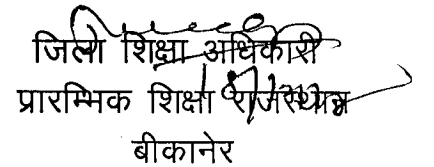 जिला शिक्षा अधिकारी
प्रारम्भिक शिक्षा राजस्थान
बीकानेर